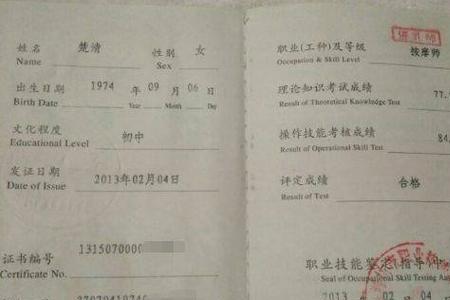 姓名 楚清 性别 女
Name Sex
出生日期 1974 年 09 月 06 日
Birth Date Year Month Day
文化程度 初中
Educational Level
发证日期 2013年02月04日
Date of Issue
证书编号 1315070000
Certificate No.
职业(工种)及等级 按摩师
Occupation & Skill Level
理论知识考试成绩 77.
Result of Theoretical Knowledge Test
操作技能考核成绩 84
Result of Operational Skill Test
评定成绩 合格
Result of Test
职业技能鉴定(指导)中
Seal of Occupational Skill Testing Au
2013 02 04